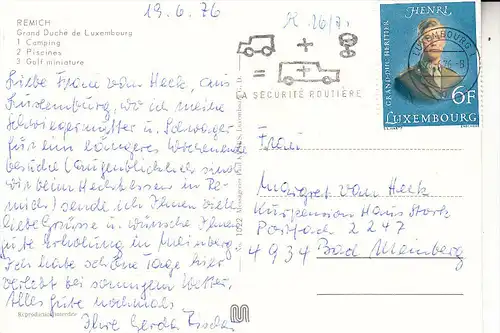 19.6.76
REMICH
Grand Duché de Luxembourg
1 Camping
2 Piscines
3 Golf miniature
Liebe Frau vom Heck, aus
Luxemburg, wo ich meine
Schwiegermutter u. Schwager
für ein längeres Wochenende
besuche (augenblicklich sind
wir beim Hechtessen in Re-
mich) sende ich Ihnen viele
liebe Grüsse u. wünsche Ihnen
gute Erholung in Meinberg.
Ich habe schöne Tage hier
verlebt bei sonnigem Wetter.
Alles Gute nochmals
Ihre Gerda
Reproduction interdite
SÉCURITÉ ROUTIÈRE
LUXEMBOURG
HENRI
GRAND-DUC HERITIER
6F
LUXEMBOURG
Frau
Margret vom Heck
Kurpension Haus Stork
Postfach 2247
4934 Bad Meinberg